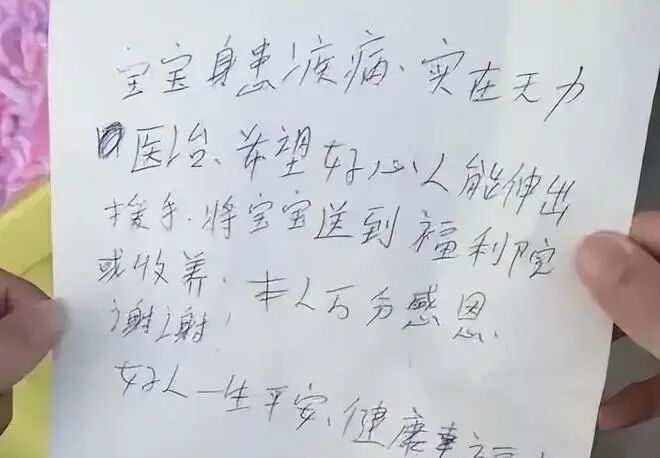 宝宝身患疾病、实在无力
医治、希望好心人能伸出
援手.将宝宝送到福利院
或收养.本人万分感恩.
谢谢!
好人一生平安、健康幸福!